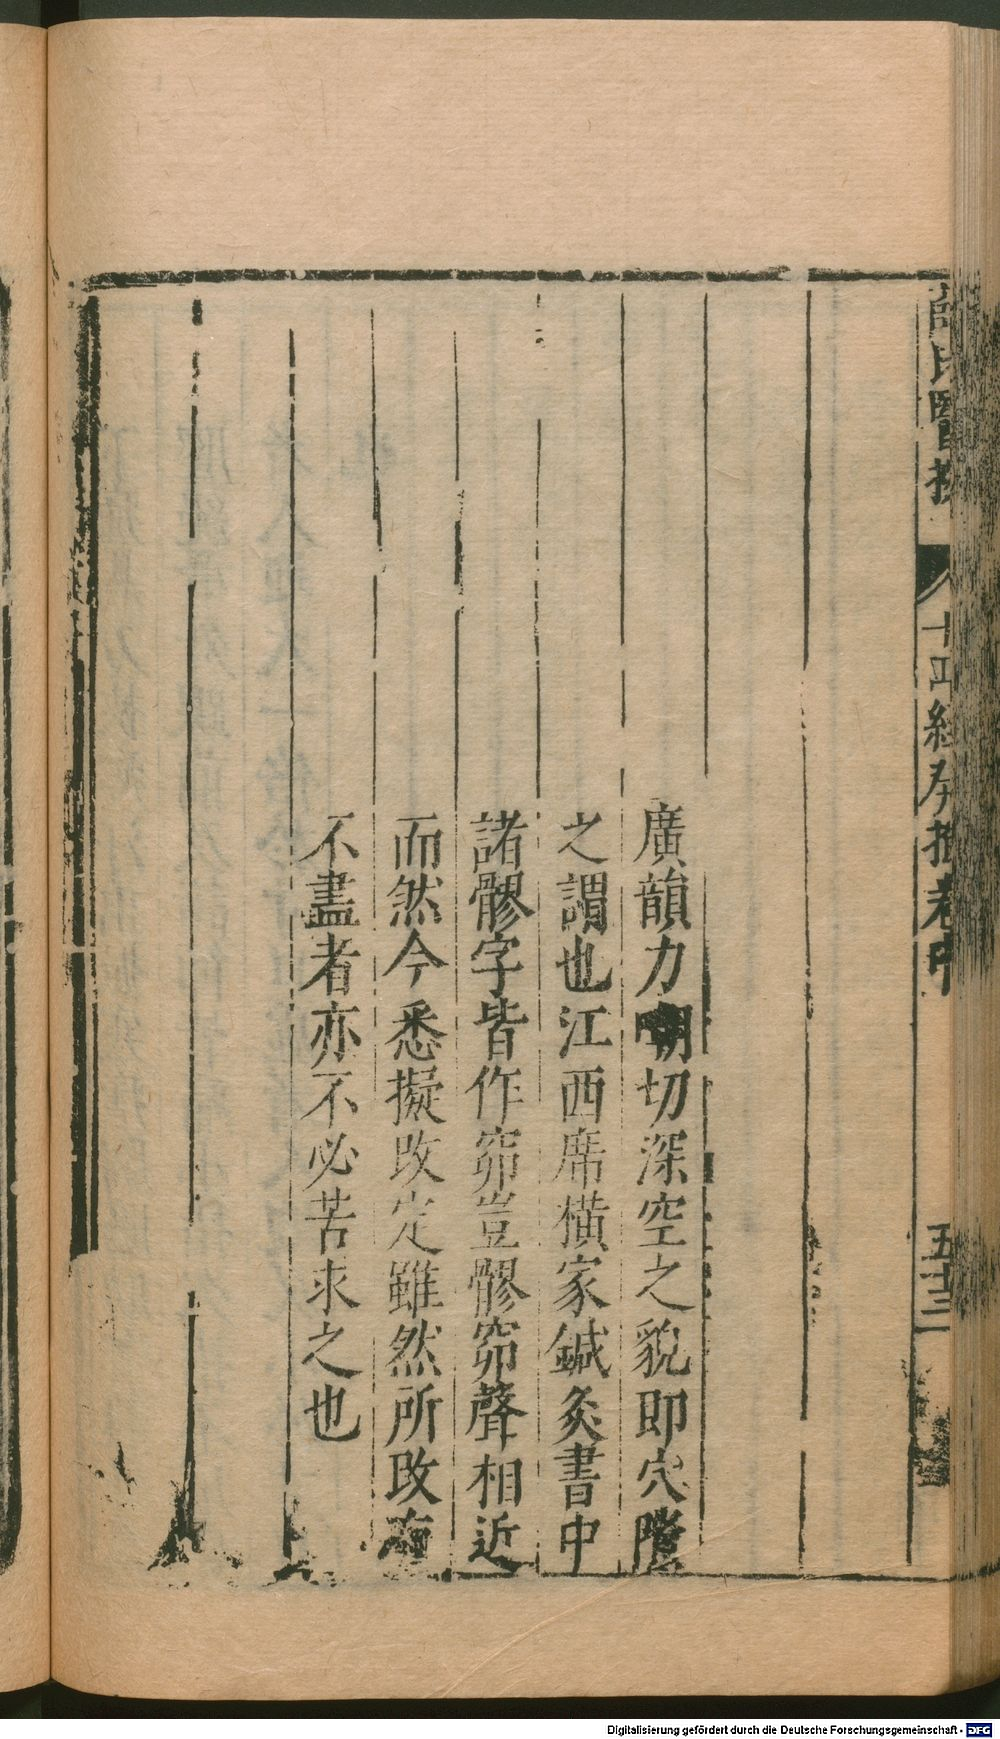 薛氏醫按 十四經發揮卷中 五十三
廣韻力嘲切深空之貌即穴隙
之謂也江西席橫家鍼灸書中
諸髎字皆作窌豈髎窌聲相近
而然今悉擬改定雖然所改有
不盡者亦不必苦求之也
Digitalisierung gefördert durch die Deutsche Forschungsgemeinschaft - DFG